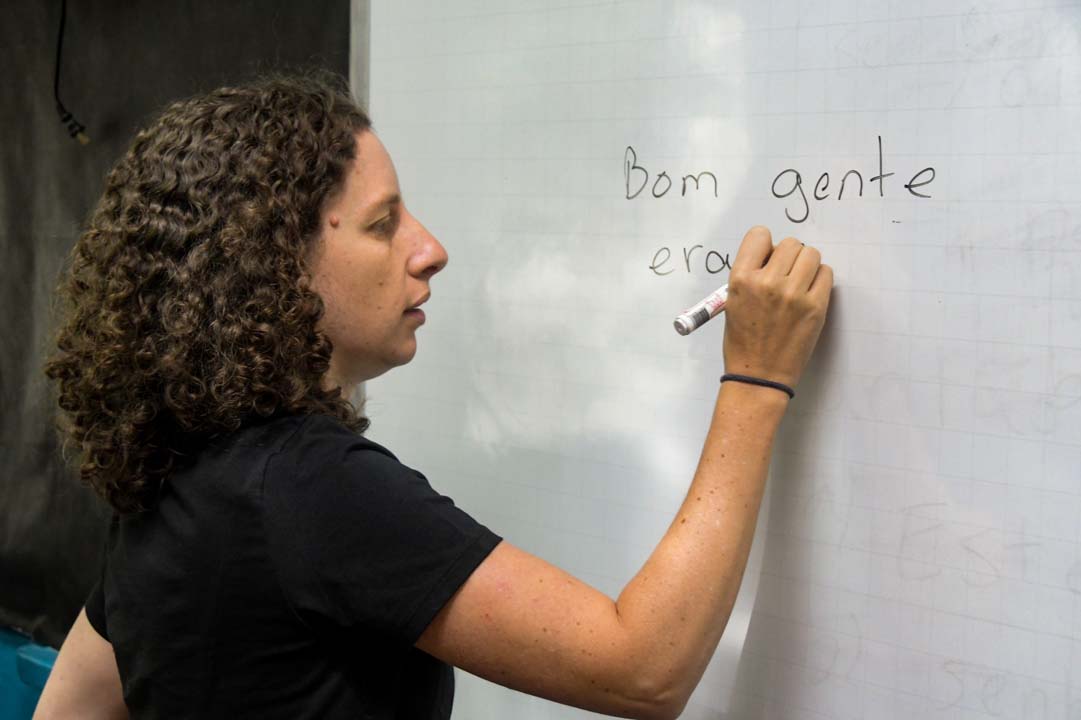 Bom gente
era